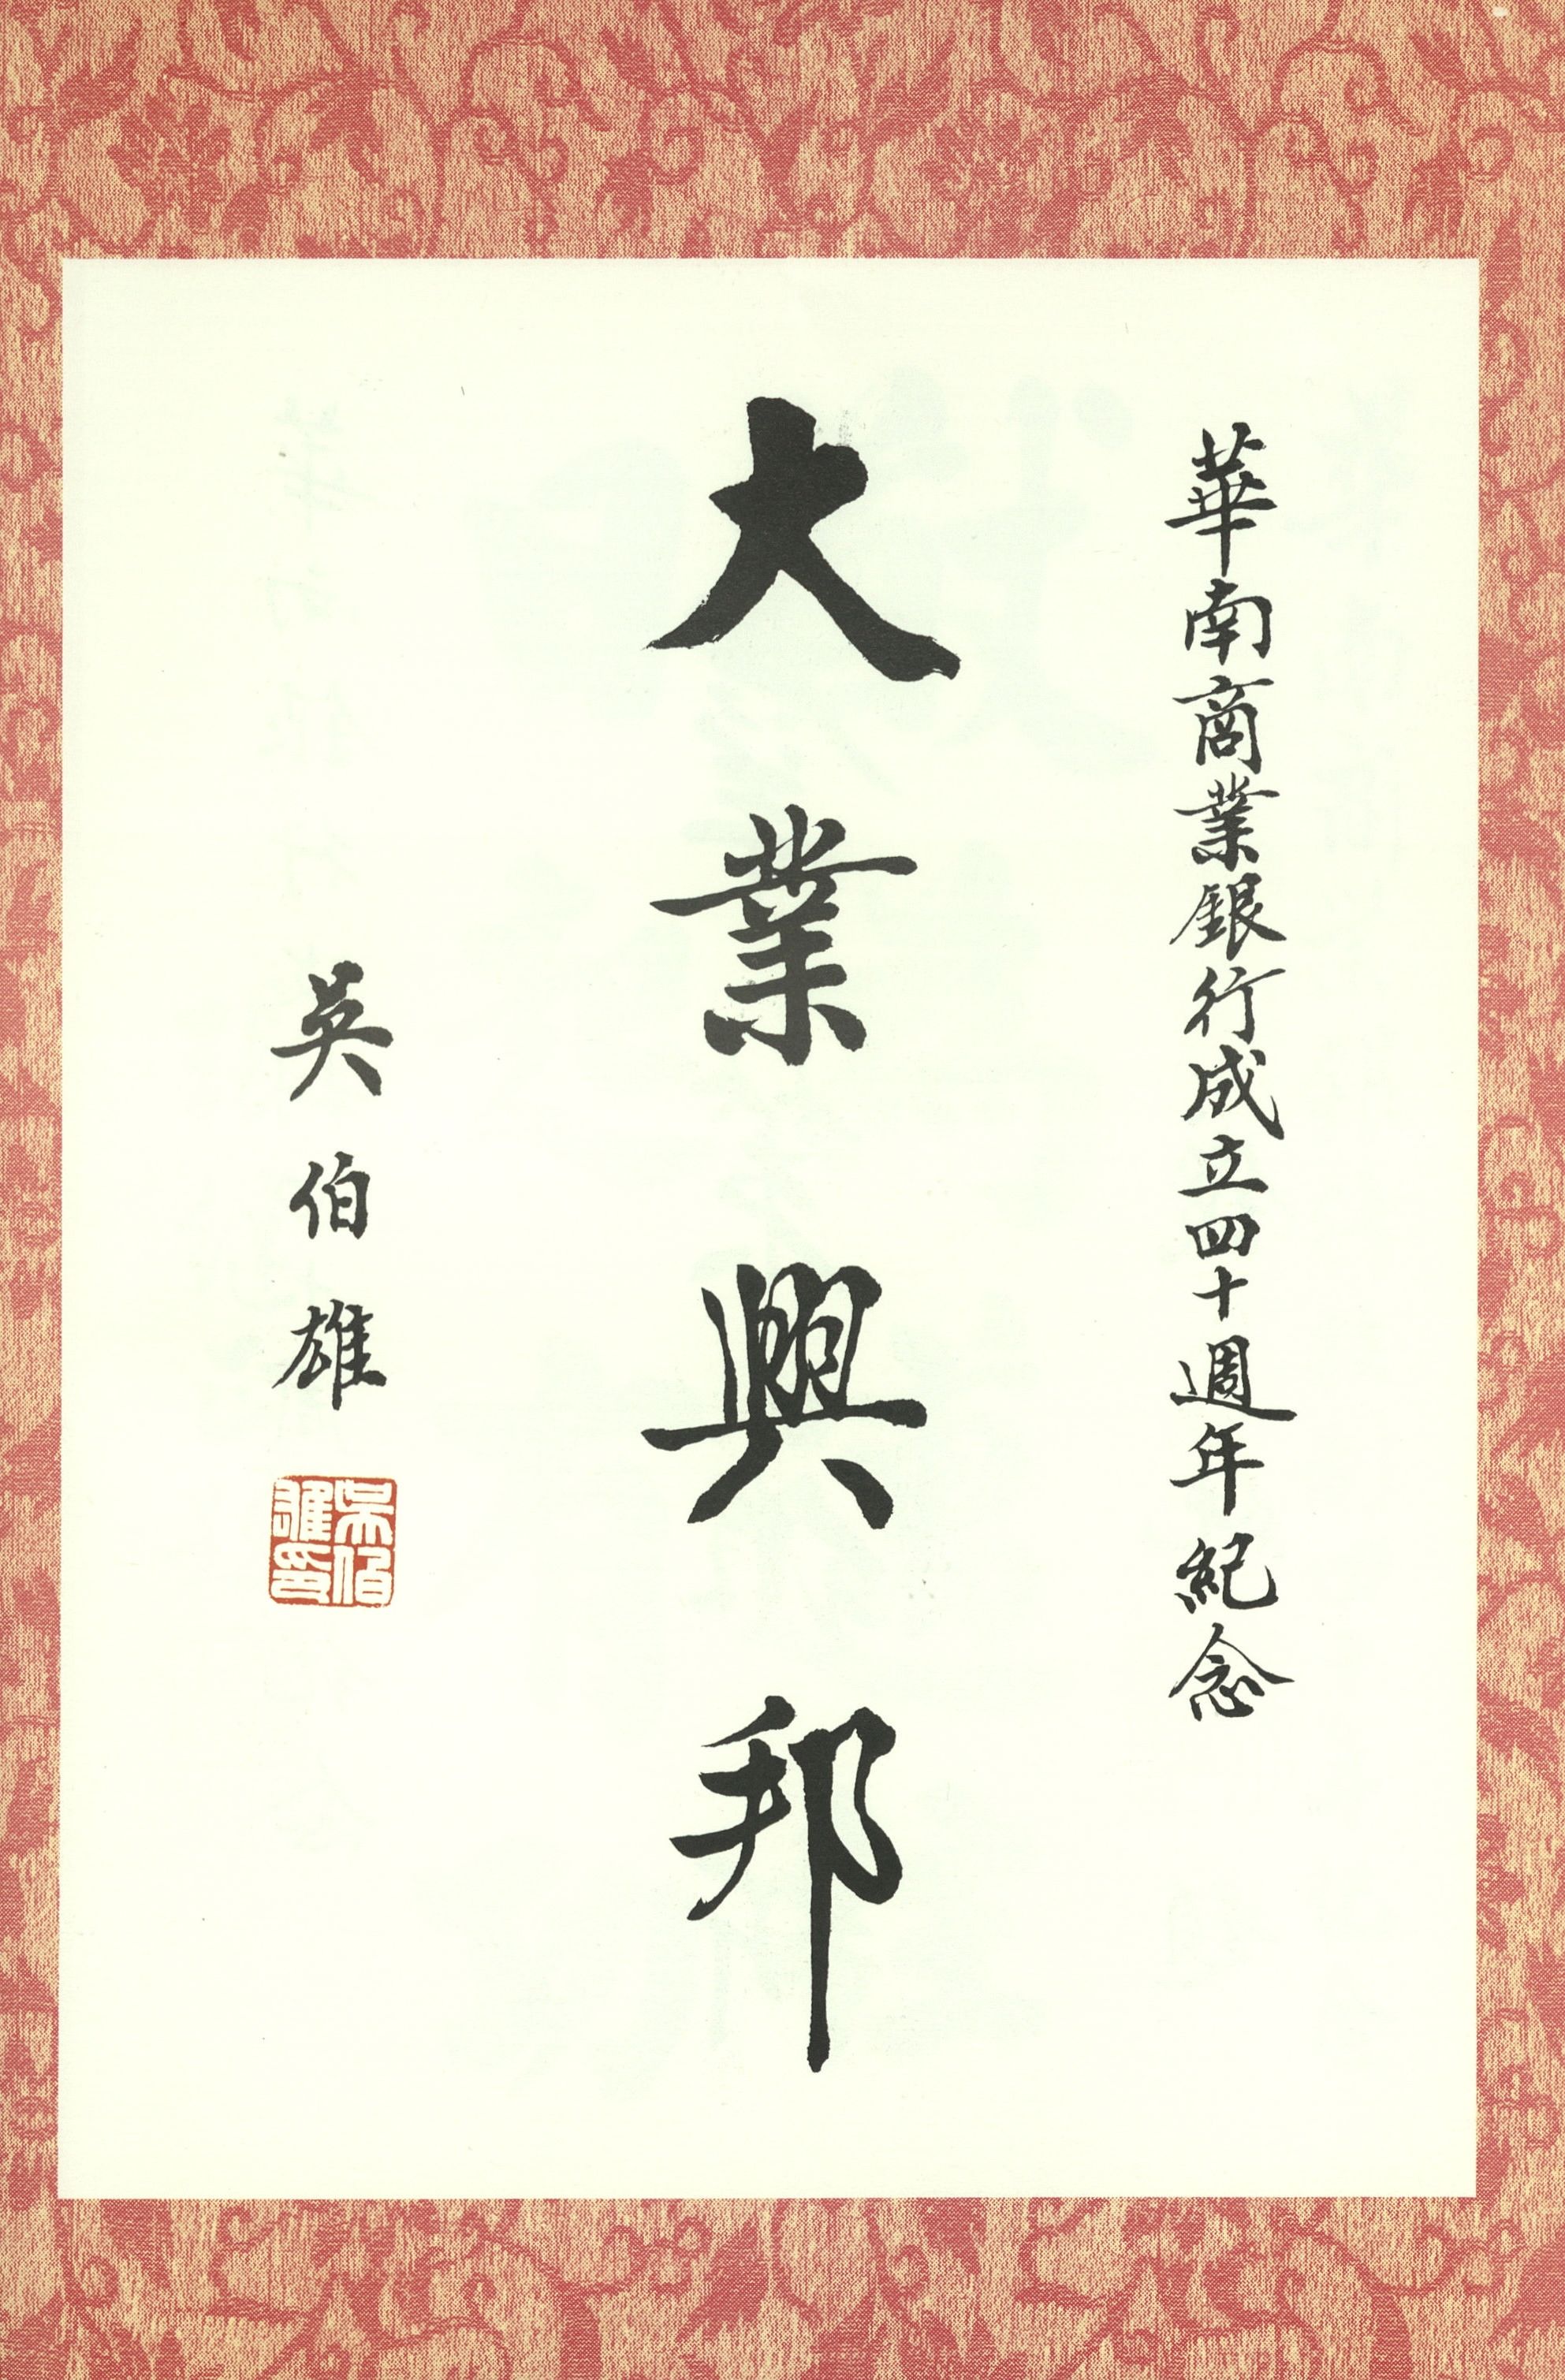 華南商業銀行成立四十週年紀念
大業興邦
吳伯雄
吳伯雄印